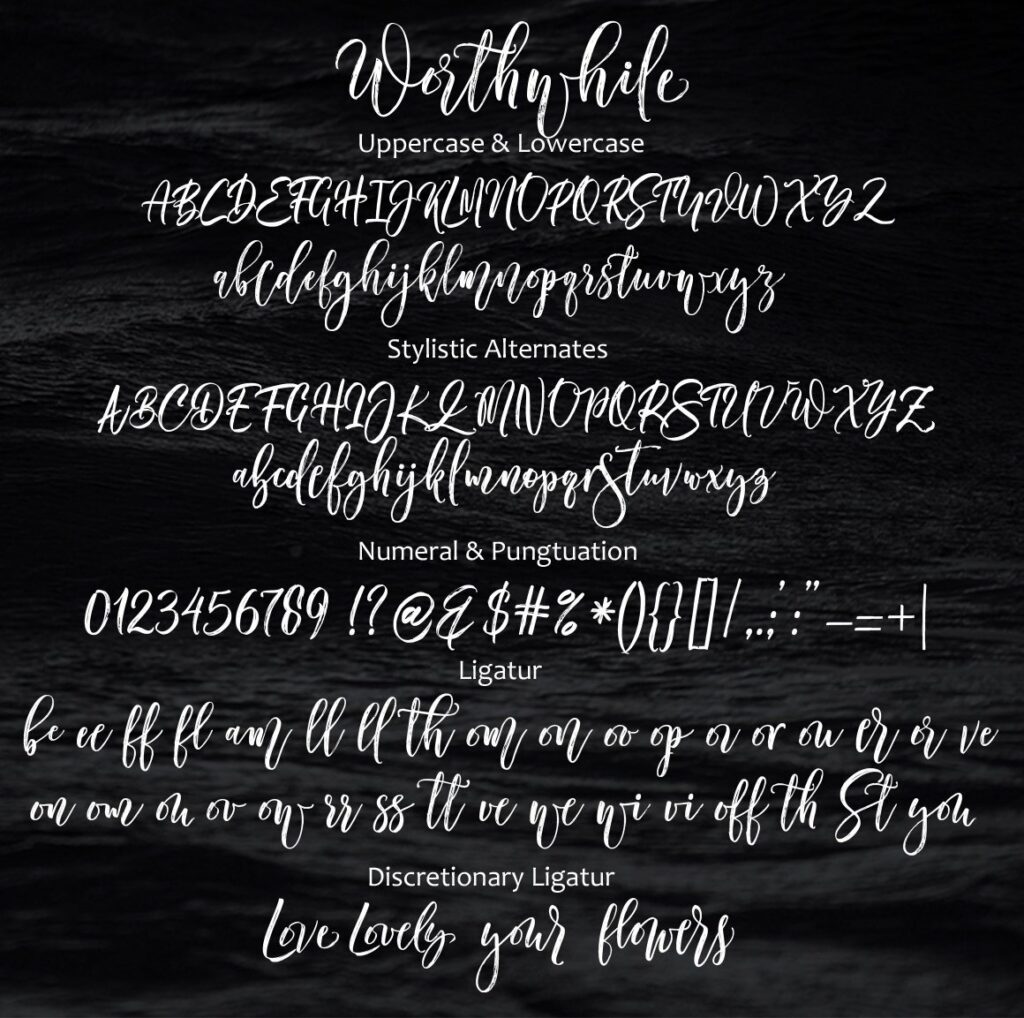 Worthwhile
Uppercase & Lowercase
ABCDEFGHIJKLMNOPQRSTUVWXYZ
abcdefghijklmnopqrstuvwxyz
Stylistic Alternates
ABCDEFGHIJKLMNOPQRSTUVWXYZ
abcdefghijklmnopqrstuvwxyz
Numeral & Pungtuation
0123456789 !?@&$#%*(){}[]/,.;':" –=+|
Ligatur
be ee ff fl am ll ll th om on oo op or ow er er ve
on om ou ov ow rr ss tt ve we wi vi off th St you
Discretionary Ligatur
Love Lovely your flowers